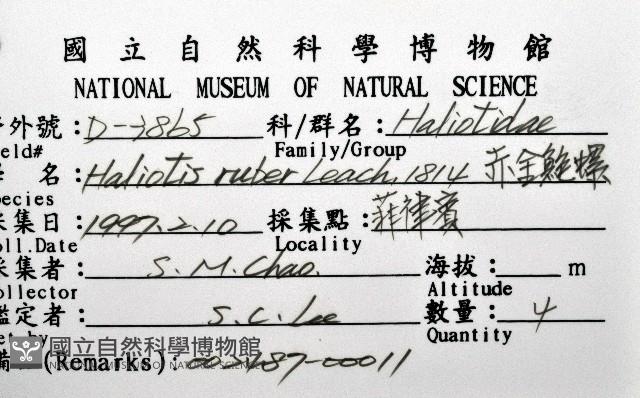 國立自然科學博物館
NATIONAL MUSEUM OF NATURAL SCIENCE
外號: 科/群名: Haliotidae
eld# Family/Group
名: Haliotis ruber Leach, 1814 赤金鮑螺
ecies
採集日: 1997.2.10 採集點: 菲律賓
oll.Date Locality
採集者: S. M. Chao 海拔: m
ollector Altitude
鑑定者: S. C. Lee 數量: 4
Quantity
備 (Remarks): -00011
國立自然科學博物館
NATIONAL MUSEUM OF NATURAL SCIENCE